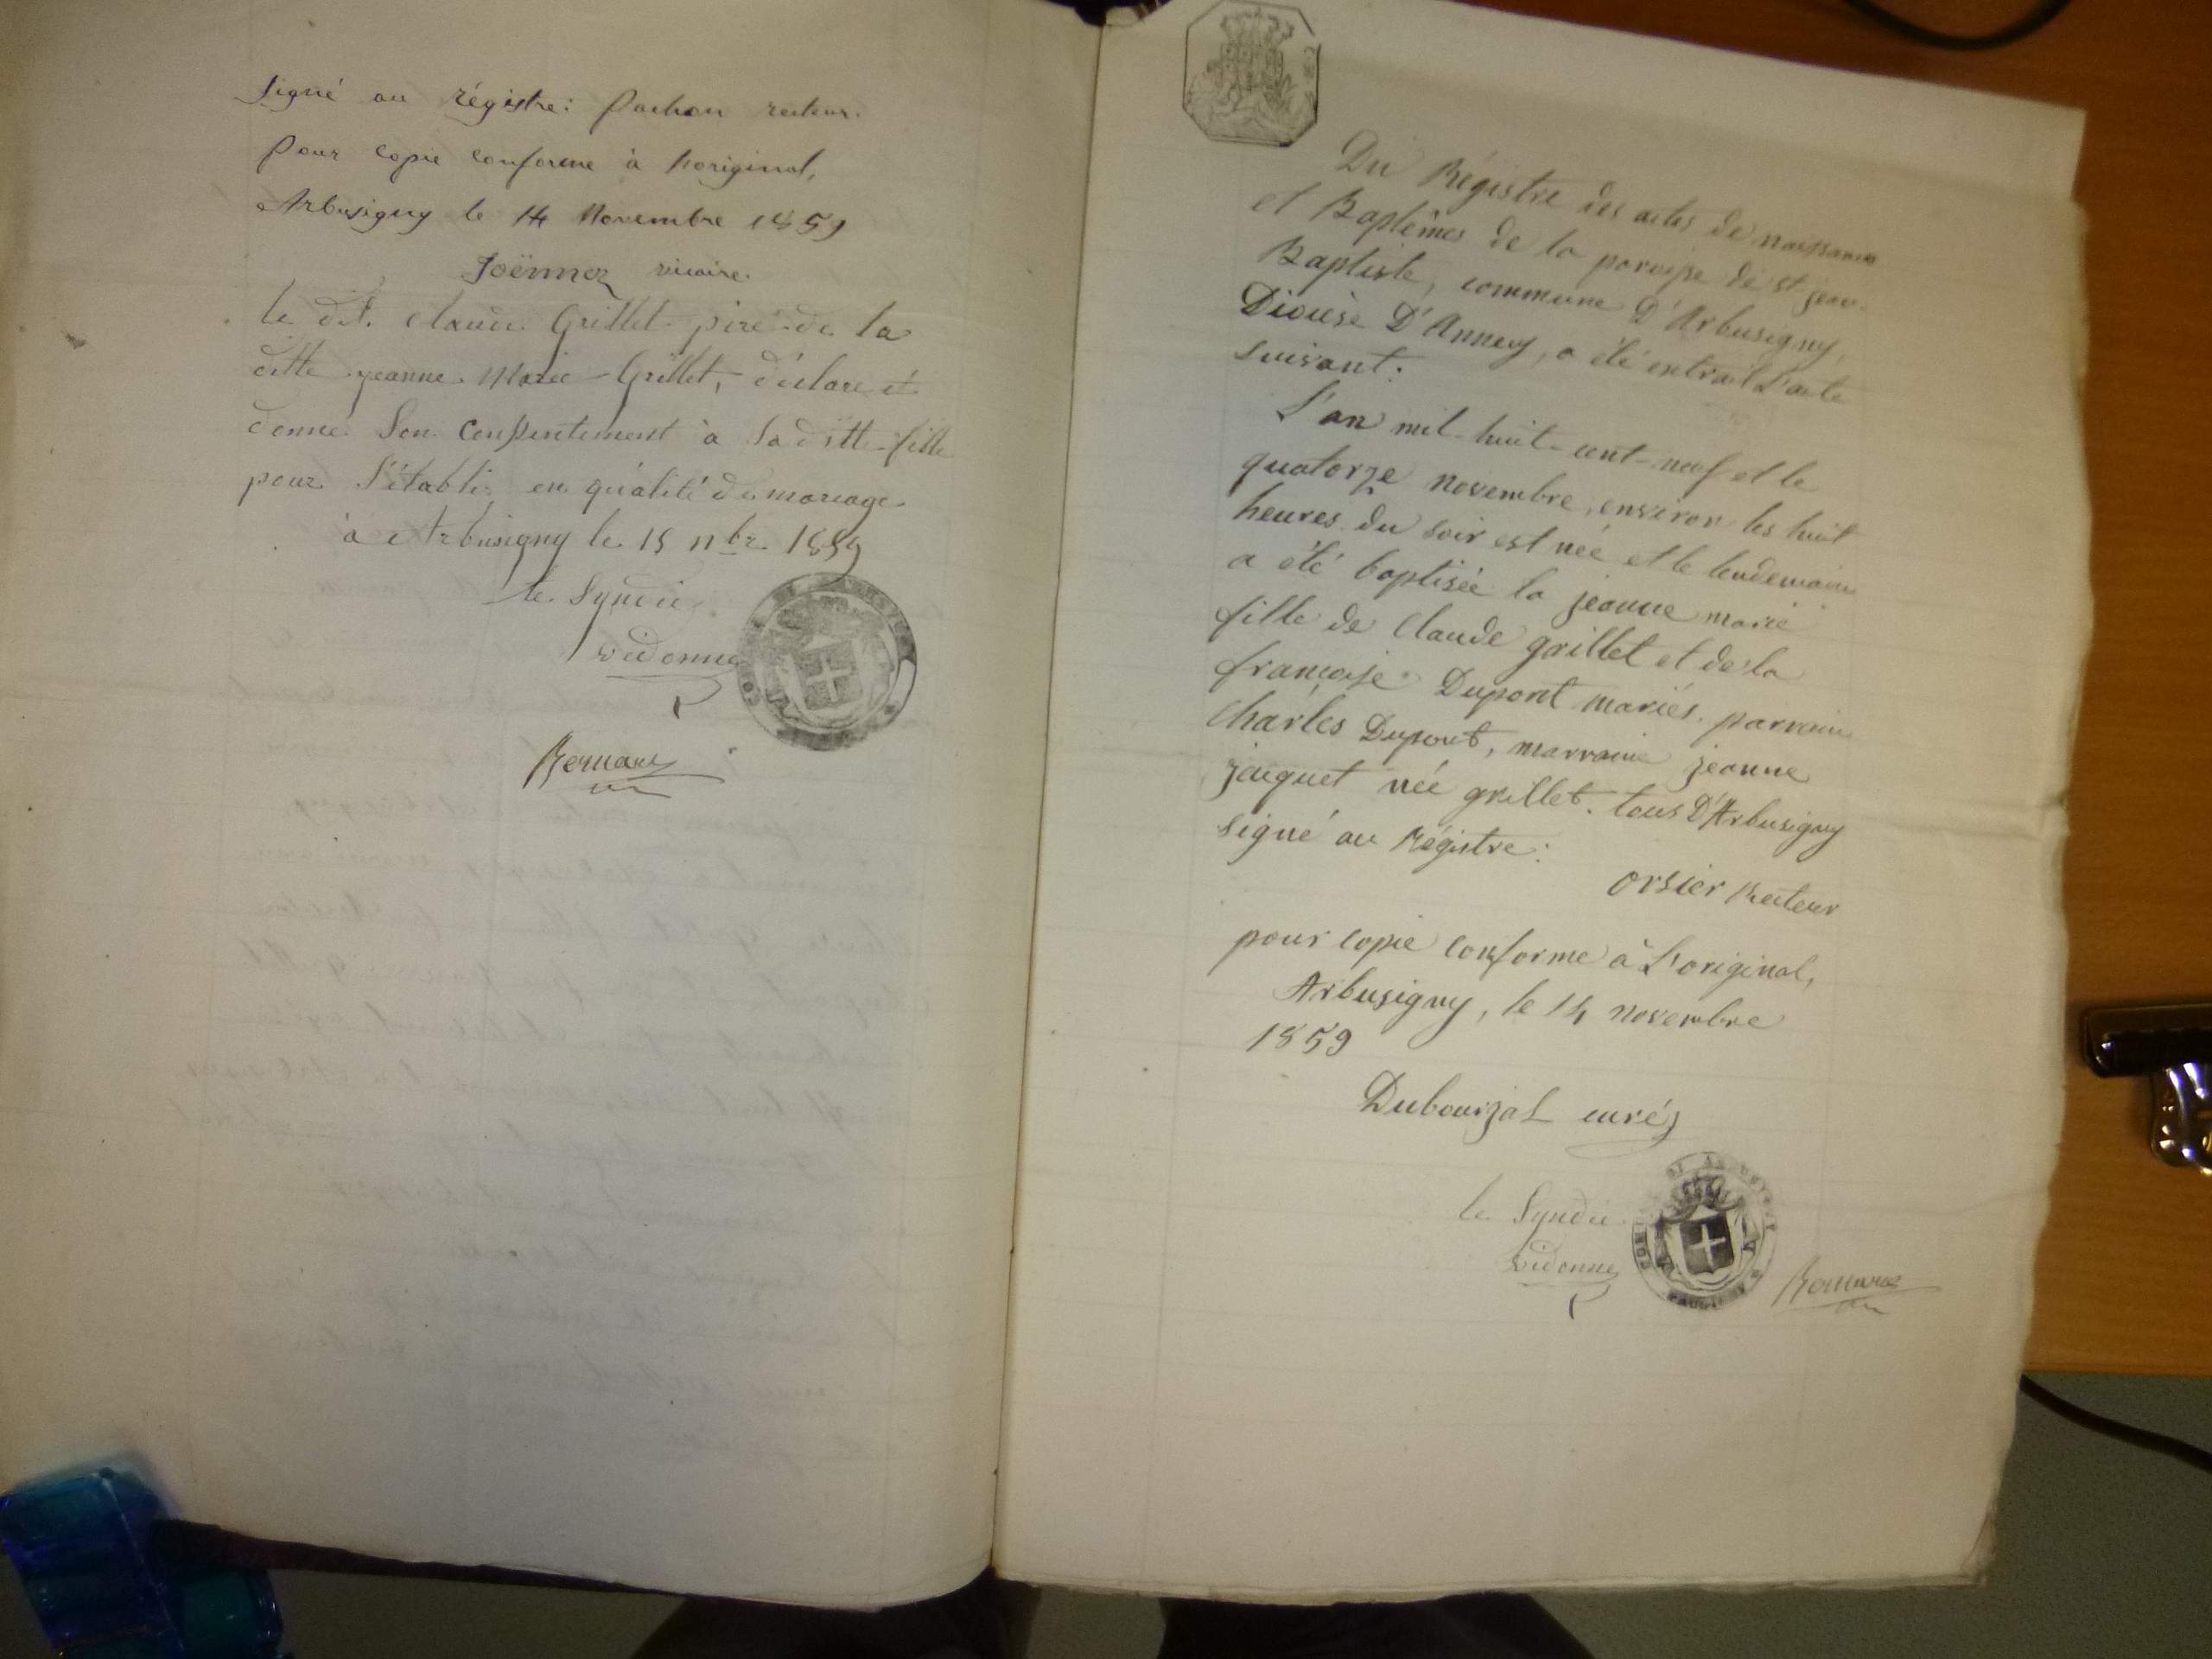 Signé au régistre: Pachon recteur.
Pour copie conforme à l'original,
Arbusigny le 14 Novembre 1859
Joënnoz vicaire.
le dit. Claude Grillet père de la
ditte jeanne Marie Grillet, déclare et
donne Son Consentement à Saditte fille
pour S'établir en quálité de mariage
à Arbusigny le 15 nbre 1859
le Syndic
Vidonne
Du Régistre des actes de naissances
et Baptêmes de la paroisse de st jean-
Baptiste, commune D'Arbusigny,
Diocèse D'Annecy, a été extrait L'acte
Suivant:
L'an mil-huit-cent-neuf et le
quatorze novembre, environ les huit
heures du soir est née et le lendemain
a été baptisée la jeanne marie
fille de Claude grillet et de la
françoise Dupont mariés. parrain
Charles Dupont, marraine jeanne
jacquet née grillet. tous D'Arbusigny
signé au Régistre:
Orsier Recteur
pour copie conforme à L'original,
Arbusigny, le 14 novembre
1859
Dubourjal curé
le Syndic
Vidonne